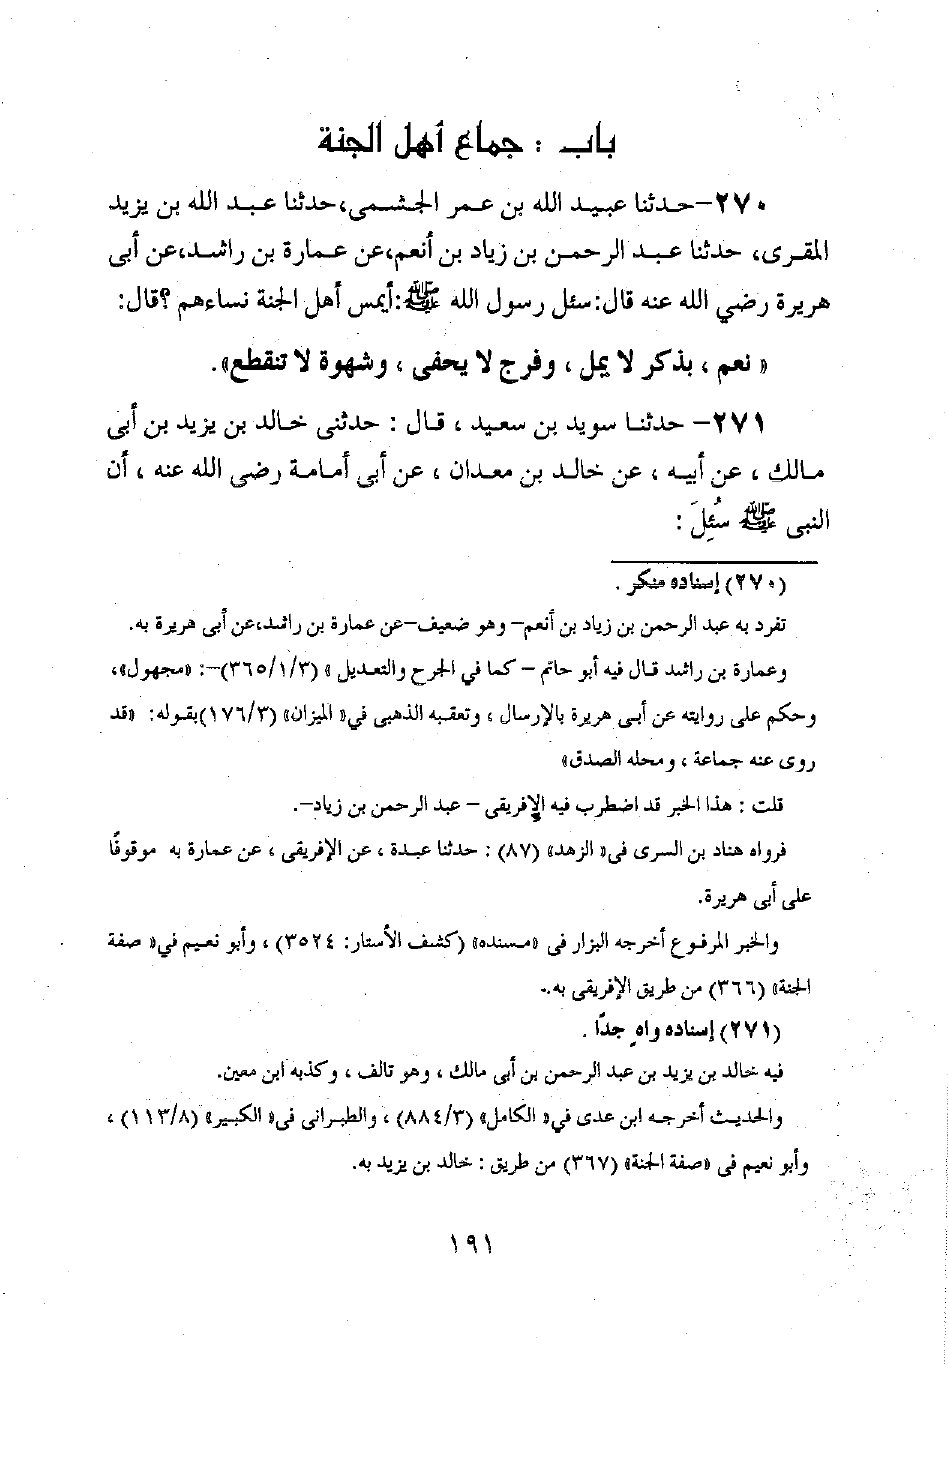 باب : جماع أهل الجنة
٢٧٠- حدثنا عبيد الله بن عمر الجشمى، حدثنا عبد الله بن يزيد
المقرى، حدثنا عبد الرحمن بن زياد بن أنعم، عن عمارة بن راشد، عن أبى
هريرة رضي الله عنه قال: سئل رسول الله ﷺ: أيمس أهل الجنة نساءهم ؟ قال:
« نعم ، بذكر لا يمل ، وفرج لا يحفى ، وشهوة لا تنقطع».
٢٧١- حدثنا سويد بن سعيد ، قال : حدثنى خالد بن يزيد بن أبى
مالك ، عن أبيه ، عن خالد بن معدان ، عن أبى أمامة رضى الله عنه ، أن
النبى ﷺ سُئِلَ :
(٢٧٠) إسناده منكر .
تفرد به عبد الرحمن بن زياد بن أنعم- وهو ضعيف- عن عمارة بن راشد، عن أبى هريرة به.
وعمارة بن راشد قال فيه أبو حاتم - كما في الجرح والتعديل » (٣٦٥/١/٣)-: «مجهول»،
وحكم على روايته عن أبى هريرة بالإرسال ، وتعقبه الذهبى في« الميزان» (١٧٦/٣) بقوله: «قد
روى عنه جماعة ، ومحله الصدق»
قلت : هذا الخبر قد اضطرب فيه الإفريقى - عبد الرحمن بن زياد-.
فرواه هناد بن السرى فى« الزهد» (٨٧) : حدثنا عبدة ، عن الإفريقى ، عن عمارة به موقوفًا
على أبى هريرة.
والخبر المرفوع أخرجه البزار فى «مسنده» (كشف الأستار: ٣٥٢٤) ، وأبو نعيم في« صفة
الجنة» (٣٦٦) من طريق الإفريقى به.
(٢٧١) إسناده واهٍ جدًا .
فيه خالد بن يزيد بن عبد الرحمن بن أبى مالك ، وهو تالف ، وكذبه ابن معين.
والحديث أخرجه ابن عدى في« الكامل» (٨٨٤/٣) ، والطبرانى فى« الكبير» (١١٣/٨) ،
وأبو نعيم فى «صفة الجنة» (٣٦٧) من طريق : خالد بن يزيد به.
١٩١